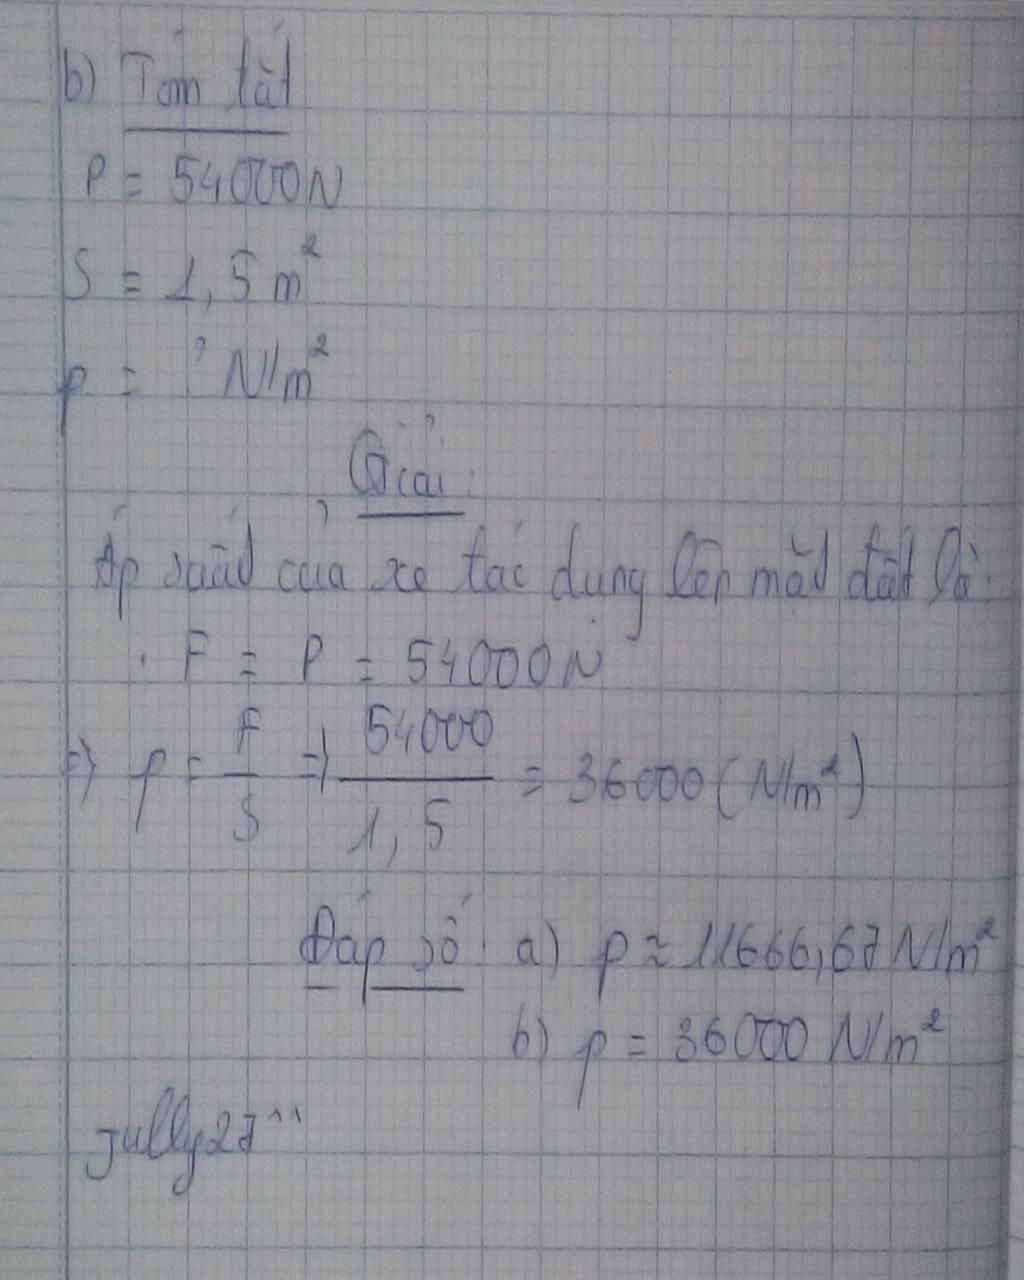 b) Tóm tắt
P = 54000N
S = 1,5 m²
p = ? N/m²
Giải:
Áp suất của xe tác dụng lên mặt đất là:
F = P = 54000N
=> p = F/S => 54000/1,5 = 36000 (N/m²)
Đáp số: a) p ≈ 11666,67 N/m²
b) p = 36000 N/m²
Jully27^^